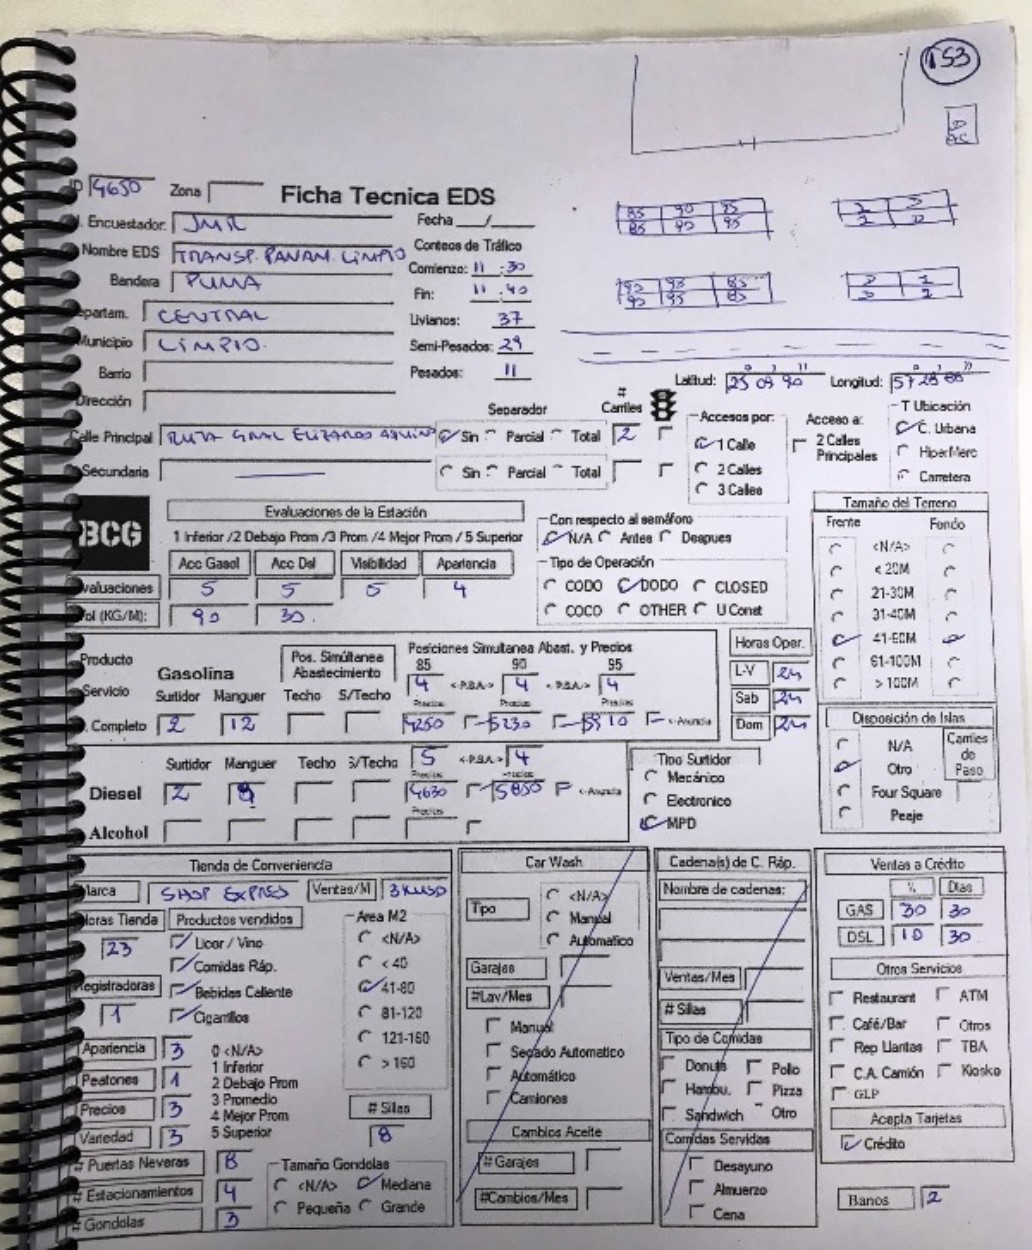 153
ID 4650 Zona
Ficha Tecnica EDS
Encuestador JMR
Fecha __/__
Nombre EDS TRANSP. PANAM. LIMPIO
Conteos de Tráfico
Bandera PUMA
Comienzo: 11 :30
Fin: 11 :40
Departam. CENTRAL
Livianos: 37
Municipio LIMPIO.
Semi-Pesados: 29
Barrio
Pesados: 11
Dirección
85 90 95
85 90 95
Latitud: 25 09 90 Longitud:
Separador # Carriles
Accesos por: Acceso a: T Ubicación
Calle Principal RUTA GRAL ELIZARDO AQUINO Sin Parcial Total 2
1 Calle 2 Calles Principales C. Urbana
Secundaria Sin Parcial Total
2 Calles HiperMerc
3 Calles Carretera
BCG
Evaluaciones de la Estación
1 Inferior /2 Debajo Prom /3 Prom /4 Mejor Prom /5 Superior
Acc Gasol Acc Dsl Visibilidad Apariencia
Evaluaciones 5 5 5 4
Vol (KG/M): 90 30.
Con respecto al semáforo
N/A Antes Despues
Tipo de Operación
CODO DODO CLOSED
COCO OTHER U Const
Tamaño del Terreno
Frente Fondo
<N/A>
< 20M
21-30M
31-40M
41-60M
61-100M
> 100M
Producto Gasolina Pos. Simúltanea Abastecimiento
Posiciones Simultanea Abast. y Precios
85 90 95
Servicio Surtidor Manguer Techo S/Techo 4 <-P.S.A.-> 4 <-P.S.A.-> 4
Precios Precios Precios
Completo 2 12 4250 5230 5910 <-Anuncia
Horas Oper.
L-V 24
Sab 24
Dom 24
Surtidor Manguer Techo S/Techo 5 <-P.S.A.-> 4
Precios Precios
Diesel 2 4630 5850 <-Anuncia
Precios
Alcohol
Tipo Surtidor
Mecánico
Electronico
MPD
Disposición de Islas
N/A Carriles de Paso
Otro
Four Square
Peaje
Tienda de Conveniencia
Marca SHOP EXPRES Ventas/M 3KUSD
Horas Tienda Productos vendidos Area M2
23 Licor / Vino <N/A>
Comidas Ráp. < 40
Registradoras Bebidas Caliente 41-80
1 Cigarrillos 81-120
121-160
> 160
Apariencia 3 0 <N/A>
1 Inferior
Peatones 1 2 Debajo Prom
Precios 3 3 Promedio
4 Mejor Prom
Variedad 3 5 Superior
# Sillas
8
# Puertas Neveras 8
# Estacionamientos 4
# Gondolas 3
Tamaño Gondolas
<N/A> Mediana
Pequeña Grande
Car Wash
Tipo <N/A>
Manual
Automatico
Garajes
#Lav/Mes
Manual
Secado Automatico
Automático
Camiones
Cambios Aceite
# Garajes
#Cambios/Mes
Cadena(s) de C. Ráp.
Nombre de cadenas:
Ventas/Mes
# Sillas
Tipo de Comidas
Donuts Pollo
Hambu. Pizza
Sandwich Otro
Comidas Servidas
Desayuno
Almuerzo
Cena
Ventas a Crédito
% Dias
GAS 30 30
DSL 10 30
Otros Servicios
Restaurant ATM
Café/Bar Otros
Rep Llantas TBA
C.A. Camión Kiosko
GLP
Acepta Tarjetas
Crédito
Banos 2